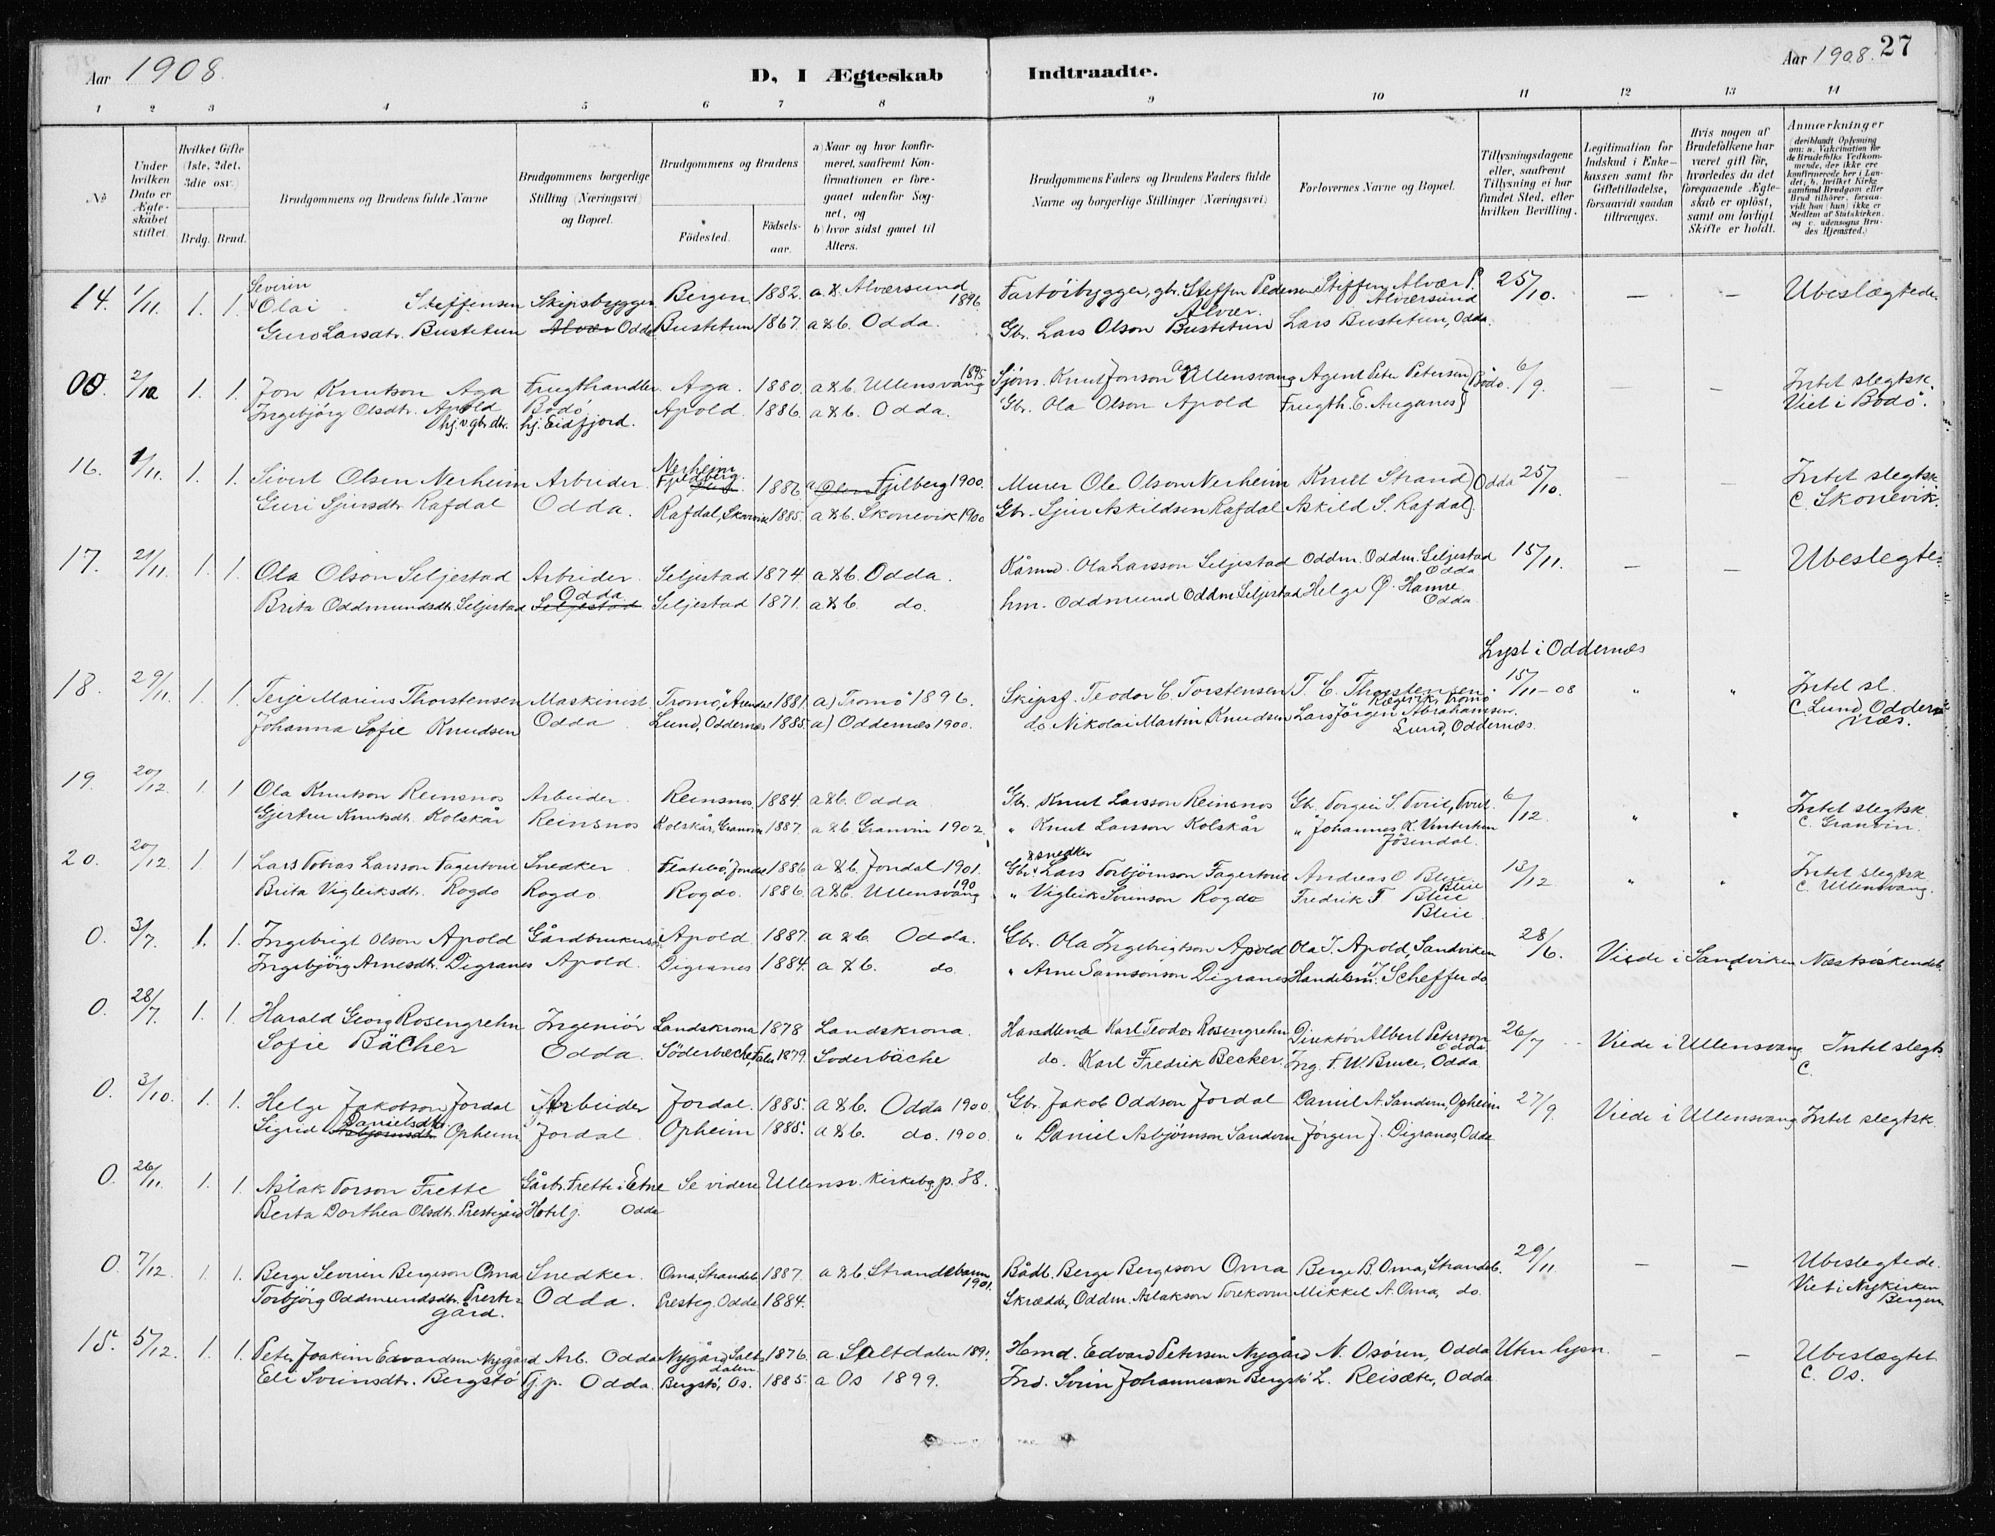 Aar 1908.
D, I Ægteskab Indtraadte.
Aar 1908. 27
1 2 3 4 5 6 7 8 9 10 11 12 13 14
No
Under hvilken Dato er Ægteskabet stiftet.
Hvilket Gifte (1ste, 2det, 3die osv.)
Brdg. Brud.
Brudgommens og Brudens fulde Navne
Brudgommens borgerlige Stilling (Næringsvei) og Bopæl.
Brudgommens og Brudens
Fødested. Fødselsaar.
a) Naar og hvor konfirmeret, saafremt Konfirmationen er foregaaet udenfor Sognet, og
b) hvor sidst gaaet til Alters.
Brudgommens Faders og Brudens Faders fulde Navne og borgerlige Stillinger (Næringsvei)
Forlovernes Navne og Bopæl.
Tillysningsdagene eller, saafremt Tillysning ei har fundet Sted, efter hvilken Bevilling.
Legitimation for Indskud i Enkekassen samt for Giftetilladelse, forsaavidt saadan tiltrænges.
Hvis nogen af Brudefolkene har været gift før, hvorledes da det foregaaende Ægteskab er opløst, samt om lovligt Skifte er holdt.
Anmærkninger
14. 1/11. 1. 1. Severin Olai Steffensen Skipsbygger Bergen 1882. a.& Alværsund 1896 Fartøibygger, gbr. Steffen Pedersen Alvær. Steffen Alvær P. Alværsund 25/10. — — Ubeslægtede
Guro Larsdtr. Bustetun Alvær Odda Bustetun 1867. a&b. Odda. Gbr. Lars Olson Bustetun Lars Bustetun, Odda.
00. 2/10 1. 1. Jon Knutson Aga Frugthandler Aga. 1880. a&b. Ullensvang 1895 Sjøm. Knut Jonson Aga Ullensvang Agent Peter Petersen Bodø. 6/9. — — Intet slegtsk.
Ingebjörg Olsdtr. Apold hj.v.gbr.dtr. Bodö hj. Eidfjord. Apold 1886. a&b. Odda. Gbr. Ola Olson Apold Frugth. E. Auganes Viet i Bodö.
16. 1/11. 1. 1. Sivert Olsen Nerheim Arbeider Nerheim Fjelberg 1886 Fjelberg 1900. Murer Ole Olson Nerheim Knut Strand Odda 25/10. — — Intet slegtsk.
Guri Sjursdtr. Rafdal Odda. Rafdal, Skonevik 1885. a&b. Skonevik 1900 Gbr. Sjur Askildsen Rafdal Askild S. Rafdal C. Skonevik.
17. 21/11. 1. 1. Ola Olson Seljestad Arbeider Seljestad 1874 a&b. Odda. Kårmd. Ola Larsson Seljestad Oddm. Oddm. Seljestad Odda 15/11. — — Ubeslegte
Brita Oddmundsdtr. Seljestad Odda Seljestad Seljestad 1871. a&b do. hm. Oddmund Oddm Seljestad Helge Ø. Hamre Odda
Lyst i Oddernæs
18. 29/11. 1. 1. Terje Marius Thorstensen Maskinist Tromö, Arendal 1881. a) Tromö 1896. Skipsf. Teodor C. Torstensen T. C. Thorstensen. Tromö 15/11-08 " " Intet sl.
Johanna Sofie Knudsen Odda Lund, Oddernes 1885. a) Oddernes 1900. do. Nikolai Martin Knudsen Lars Jörgen Abrahamsen. Lund, Oddernæs. C. Lund Oddernæs.
19. 20/12. 1. 1 Ola Knutson Reinsnos Arbeider. Reinsnos. 1884 a&b. Odda Gbr. Knut Larsson Reinsnos 6/12. " " Intet slegtsk.
Gjertru Knutsdtr. Kolskår Reinsnos Kolskår, Granvin 1887. a&b Granvin 1902. " Knut Larsson Kolskår " Johannes K. Vinterhun Jösendal. C. Granvin.
20. 20/12 1 1 Lars Tobias Larsson Fagertvit Snedker Flatebö, Jondal 1886 a&b Jondal 1901. Gbr. & snedker Lars Torbjörnson Fagertvit Andreas O Bleie Bleie 13/12 " " Intet slegtsk
Brita Vigleiksdtr. Rogdo Rogdo Rogdo. 1886. a&b. Ullensvang 190 " Vigleik Sveinson Rogdo Fredrik F Bleie Bleie. C. Ullensvang.
0. 3/7. 1. 1. Ingebrigt Olson Apold Gårdbruker Apold. 1887. a &b. Odda. Gbr. Ola Ingebrigtson Apold Ola I. Apold, Sandviken 28/6. Viede i Sandviken Næstsöskendeb.
Ingebjörg Arnesdtr. Digranes Apold. Digranes 1884. a &b. do. " Arne Samsonson Digranes Handelsm. J. Scheffer do
0. 28/7. 1. 1. Harald Georg Rosengrehn Ingeniör Landskrona 1878 Landskrona. Handlende Karl Teodor Rosengrehn Direktör Albert Peterson Odda 26/7 Viede i Ullensvang Intet slegts
Sofie Bächer Odda. Söderbäche 1879 Soderbäche do. Karl Fredrik Becker. Ing. F. W. Bruce, Odda C.
0. 3/10. 1. 1. Helge Jakobson Jordal Arbeider Jordal. 1885. a&b. Odda 1900. Gbr. Jakob Oddson Jordal Daniel A. Sandven, Opheim 27/9. Viede i Ullensvang Intet slegtsk
Sigrid Danielsdtr. Asbjörnsdtr Opheim Jordal. Opheim 1885. a&b. do. 1900. " Daniel Asbjörnson Sandven Jörgen J. Digranes, Odda
0. 26/11. 1. 1. Aslak Torson Frette Gårbr. Frette i Etne Se videre Ullensv. Kirkebg. p. 38.
Berta Dorthea Olsdtr. Prestegård Hotelg. Odda
0. 7/12. 1. 1. Berge Severin Bergeson Oma Snedker. Oma, Strandeb. 1887. a &b. Strandebarm 1901. Bådb. Berge Bergeson Oma Berge B. Oma, Strandeb. 29/11. — — Ubeslegtede.
Torbjörg Oddmundsdtr. Prestegård. Odda. Presteg. Odda 1884. Skrædder, Oddm. Aslakson Mikkel A. Oma, do. Viet i Nykirken Bergen
15. 5/12. 1. 1. Peter Joakim Edvardsen Nygård Arb. Odda Nygård, Saltdalen 1876. a. Saltdalen 1891. Hmd. Edvard Petersen Nygård N. Osören, Odda Uten lysn. — — Ubeslægtet
Eli Sveinsdtr. Bergstö Tj.p. Odda Bergstö, Os. 1885. a Os 1899. Ind. Svein Johanneson Bergstö L. Reisæter, Odda. C. Os.